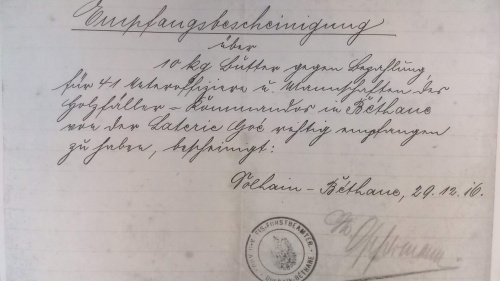 Empfangsbescheinigung
über
10 kg Butter gegen Bezahlung
für 41 Unteroffiziere u. Mannschaften des
Holzfäller-Kommandos in Béthane
von der Laterie Goé richtig empfangen
zu haben, bescheinigt:
Dolhain-Béthane, 29.12.16.